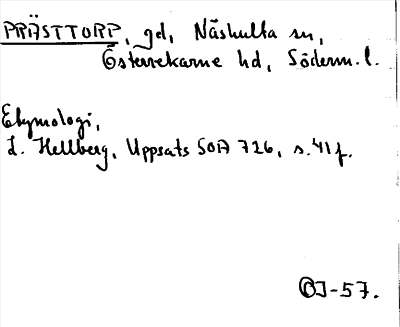 PRÄSTTORP, gd, Näshulta sn,
Österrekarne hd, Söderm. l.
Etymologi,
L. Hellberg, Uppsats SOA 726, s. 41 f.
OJ-57.